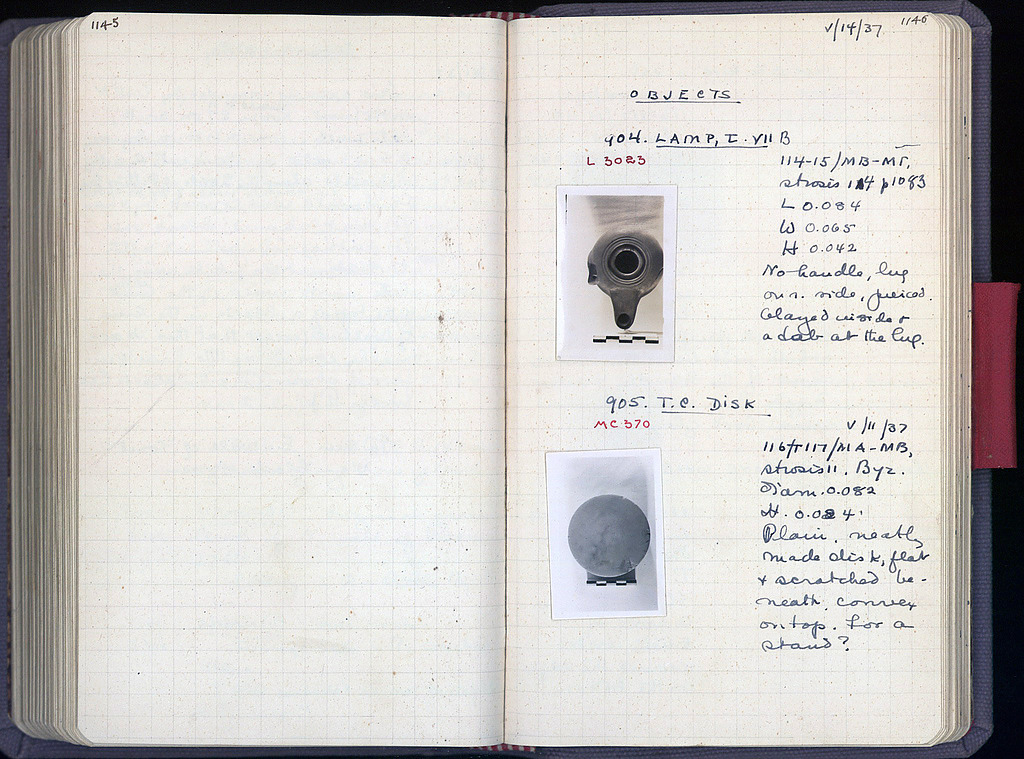 1145
V/14/37 1146
OBJECTS
904. LAMP, T. VII B
L 3083
114-15/MB-MΓ,
strosis 114 p1083
L 0.084
W 0.065
H 0.042
No handle, lug
on r. side, pierced.
Glazed inside +
a dab at the lug.
905. T.C. DISK
MC 370
V/11/37
116/117/MA-MB,
strosis 11. Byz.
Diam. 0.082
H. 0.024
Plain, neatly
made disk, flat
+ scratched be-
neath, convex
on top. For a
stand?